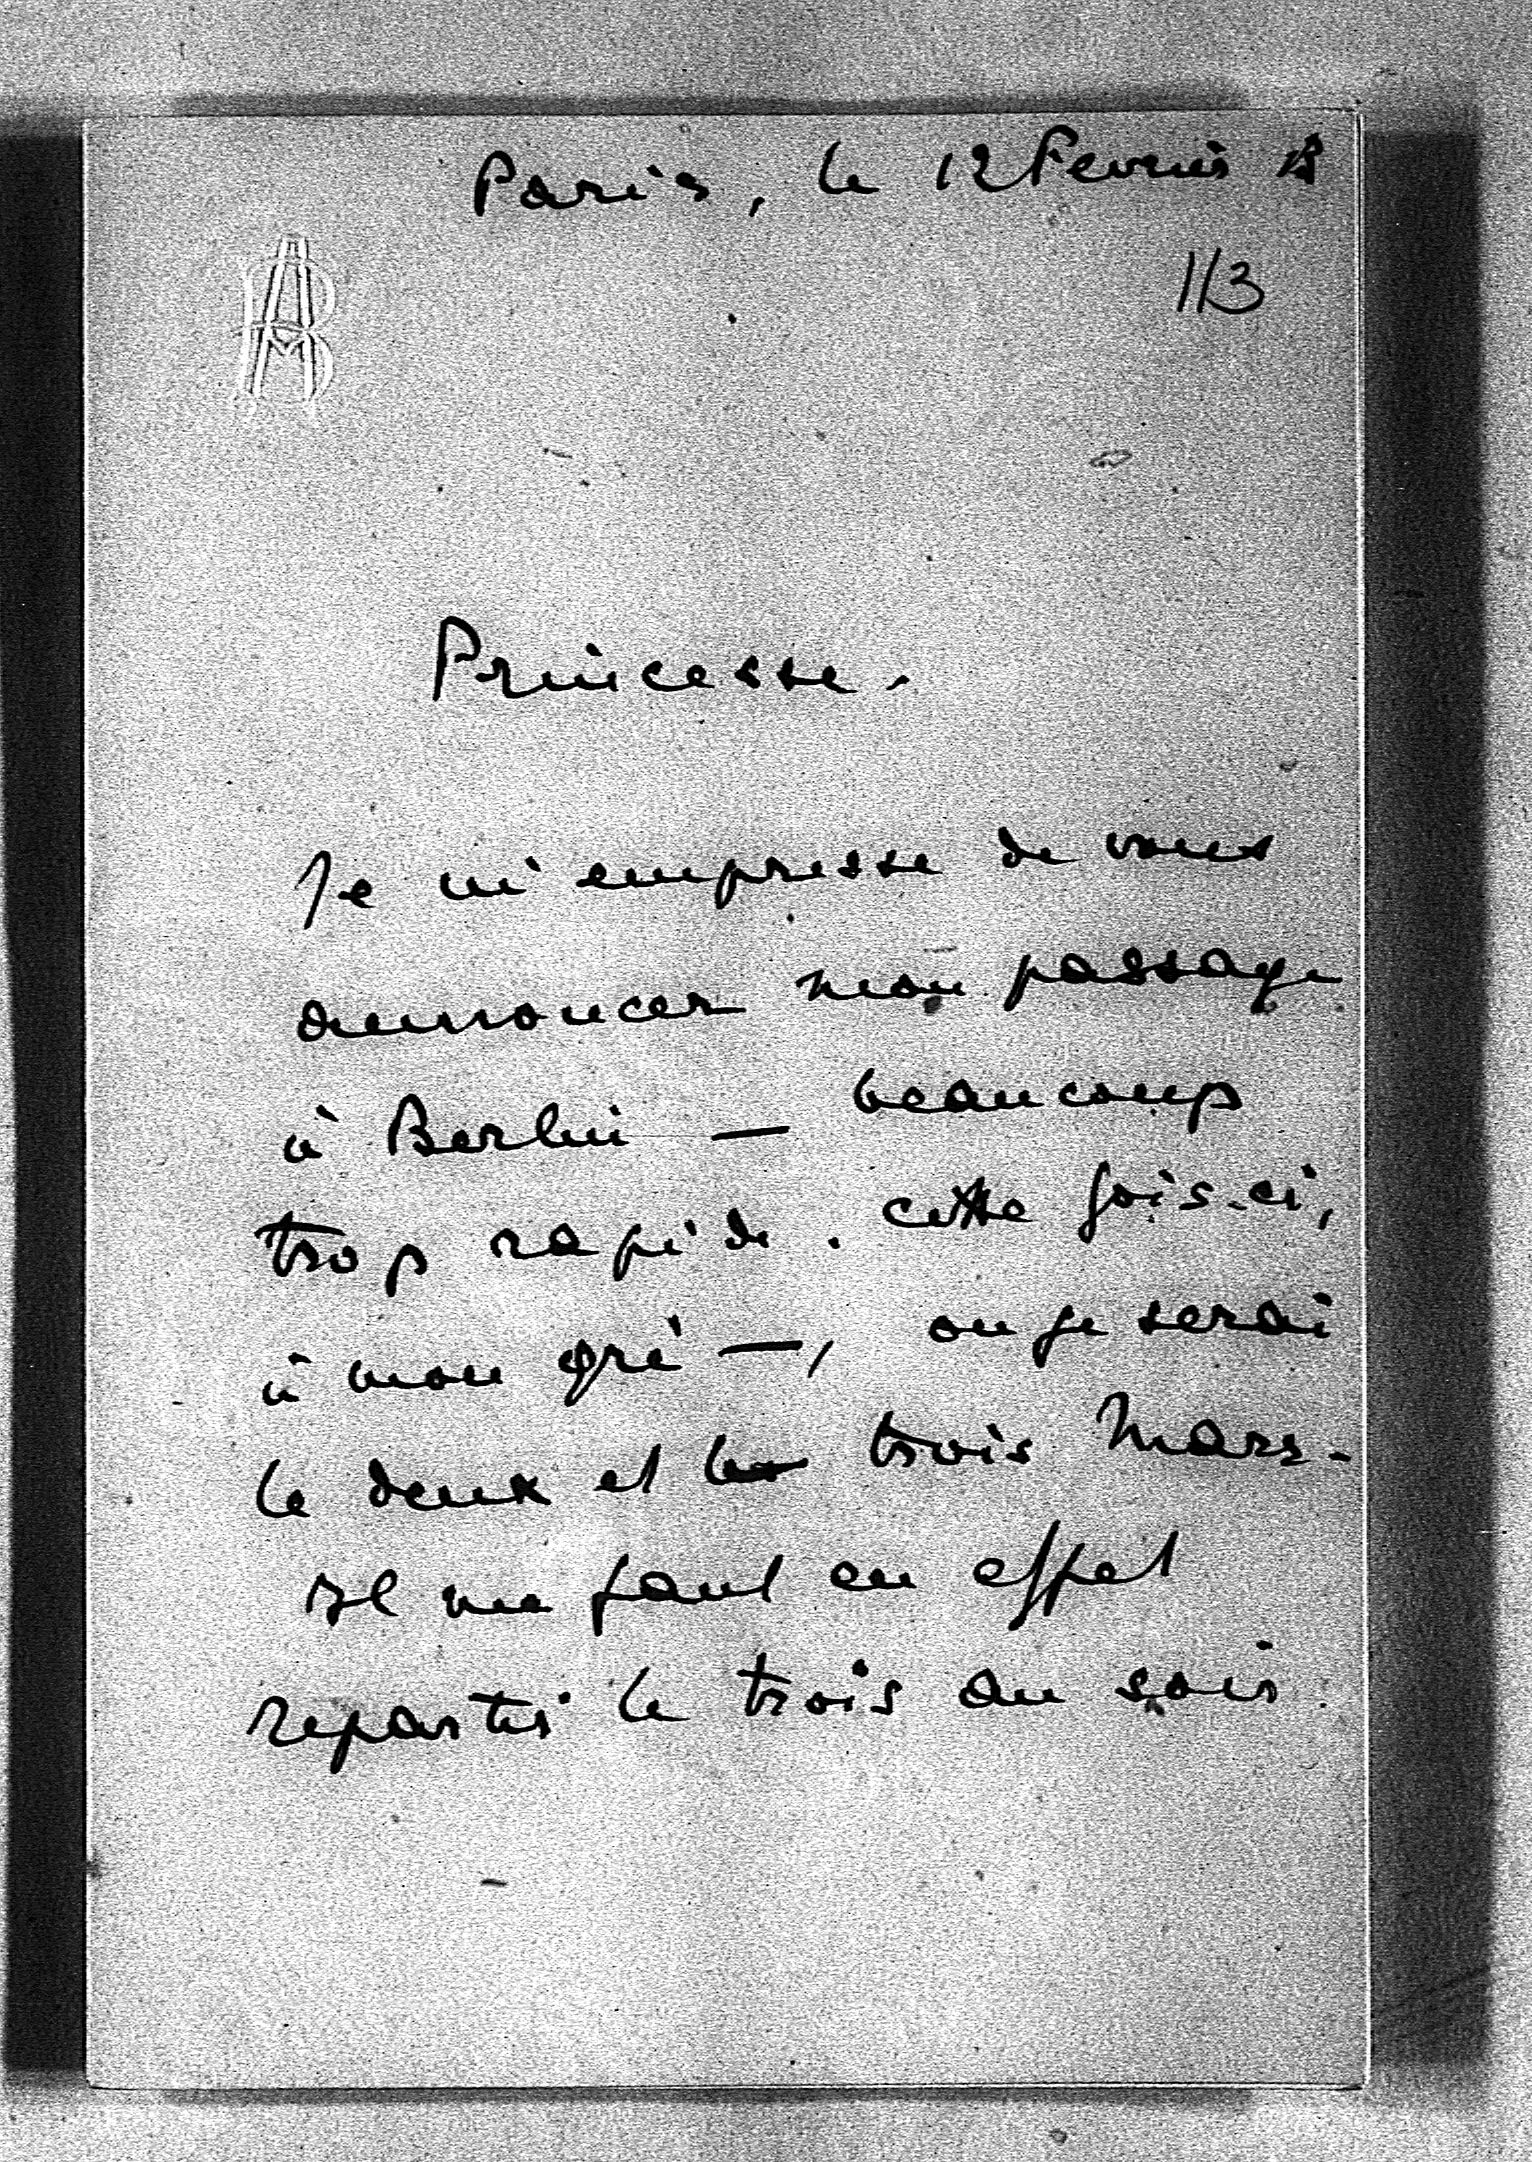 Paris, le 12 Fevrier 13
113
Princesse.
Je m'empresse de vous
annoncer mon passage
à Berlin — beaucoup
trop rapide. cette fois-ci,
à mon gré —, ou je serai
le deux et le trois Mars.
Il me faut en effet
repartir le trois au soir.